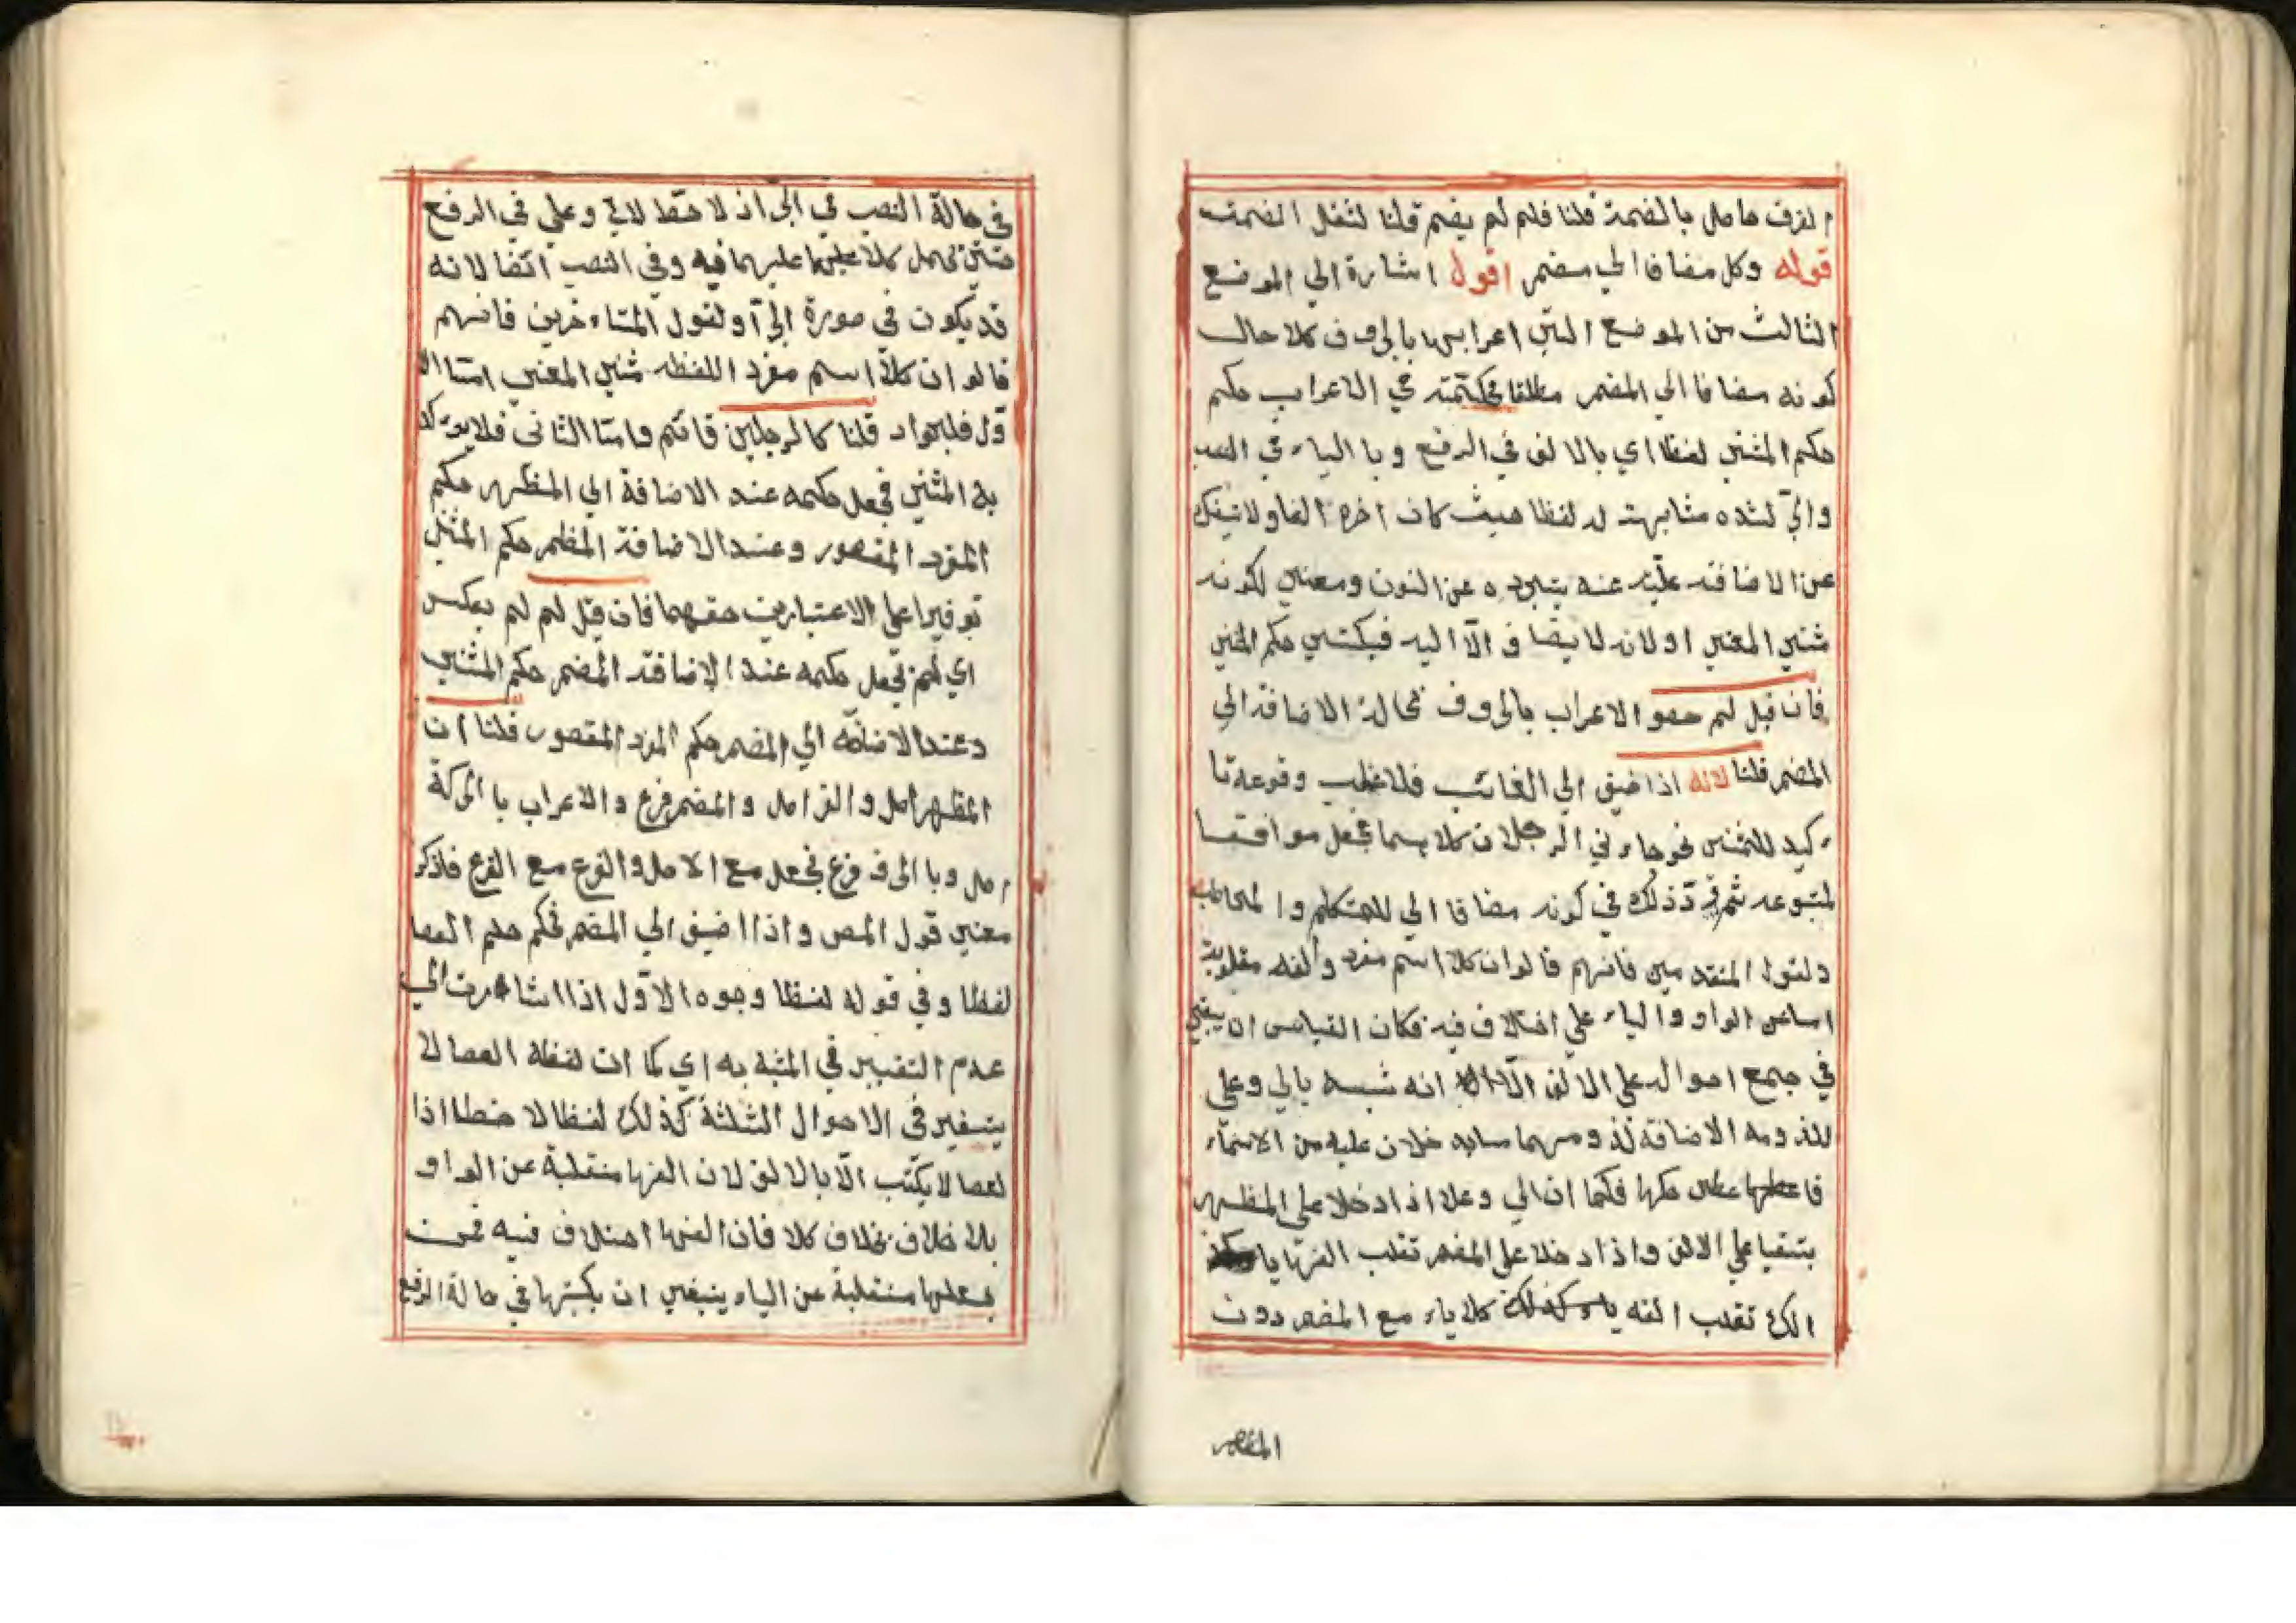 الفرق حاصل بالضمة قلنا فلم لم يضم قلنا لثقل الضمة
قوله وكل مضافا الي مضمر اقول اشارة الي الموضع
الثالث من الموضع التي اعرابها بالحروف كلا حال
كونه مضافا الي المضمر مطلقا في الاعراب حكم
حكم المثني لفظا اي بالالف في الرفع وبالياء في النصب
والجر لشده مشابهته له لفظا حيث كان اخره الفا ولا ينفك
عن الاضافة عنه بتجرده عن النون ومعني لكونه
مثني المعني او لانه لا يضاف الا اليه فيكتسي حكم المثني
فان قيل لم الاعراب بالحروف بحالة الاضافة الي
المضمر قلنا لانه اذا ضيف الي الغائب فلا غلب وقوعه تا
ءكيد للمثني نحو جاء ني الرجلان كلاهما فجعل موافقا
لمتبوعه ثم ذلك في كونه مضافا الي للمتكلم والمخاطب
ولقول المتقدمين فانهم قالوا ان كلا اسم مفرد والفه مقلوبة
اما عن الواو والياء علي اختلاف فيه فكان القياس ان يبقي
في جمع احواله علي الالف الا انه شبه بالي وعلي
للذومه الاضافة من الاسماء
حكها فكما ان الي وعلا اذا دخلا علي المظهر
يتبقيا علي الالف واذا دخلا علي المضمر تقلب الفها يا
الك تقلب الفه ياء كلا ياء مع المضمر دون
المظهر
في حالة النصب في الجر اذ لا حفظ لالي وعلي في الرفع
حتي يحمل كلا عليهما فيه وفي النصب اتفا لانه
قد يكون في صورة الجر او لقول المتاءخرين فانهم
قالو ان كلا اسم مفرد اللفظ مثني المعني امتا الا
ول فلجواد قلنا كالرجلين قائم وامتا الثاني فلا يوء كد
به المثني فجعل حكمه عند الاضافة الي المظهر حكم
المفرد المقصور وعند الاضافة المظمر حكم المثني
توفيرا علي الاعتبارين حقهما فان قيل لم لم يعكس
اي لم نجعل حكمه عند الاضافة المضمر حكم المثني
وعند الاضافة الي المضمر حكم المفرد المقصور قلنا ان
المظهر اصل والفر اصل والمضمر فرع والاعراب با الحركة
اصل وبا الحرف فرع فجعل مع الاصل والفرع مع الفرع فاذكر
معني قول المص واذا اضيف الي المضمر فحكم حكم العصا
لفظا وفي قوله لفظا وجوه الاول اذا اشا رت الي
عدم التغيير في المثبه به اي كما ان لفظه العصا لا
يتغير في الاحوال الثلثة كذلك لفظا لا خطا اذا
لعصا لا يكتب الا بالالف لان الفها منقلبة عن الواو
بلا خلاف بخلاف كلا فان الفها اختلاف فيه فمن
جعلها منقلبة عن الياء ينبغي ان يكتبها في حالة الرفع